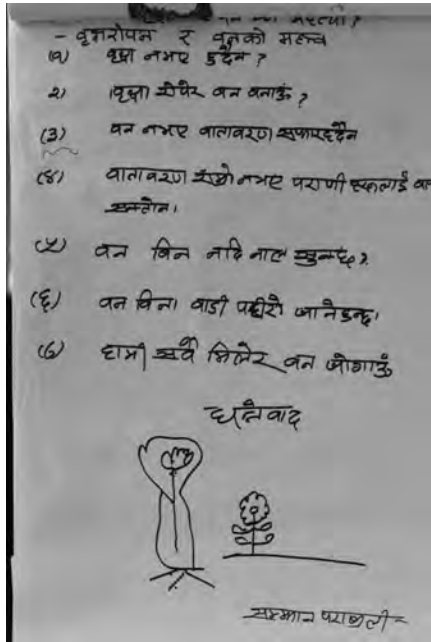 - वृक्षरोपन र वनको महत्त्व
(१) वृक्ष नभए हुदैन ?
२) वृक्ष रोपेर वन बनाऊं ?
(३) वन नभए वातावरण सफा हुदैन
(४) वातावरण राम्रो नभए पराणी हरूलाई
(५) वन विन नदि नाल सुक्छ ?
(६) वन विना वाडी पहीरो जानेहुन्छ।
(७) हामी सर्वै मिलेर वन जोगाऊं
धनेवाद